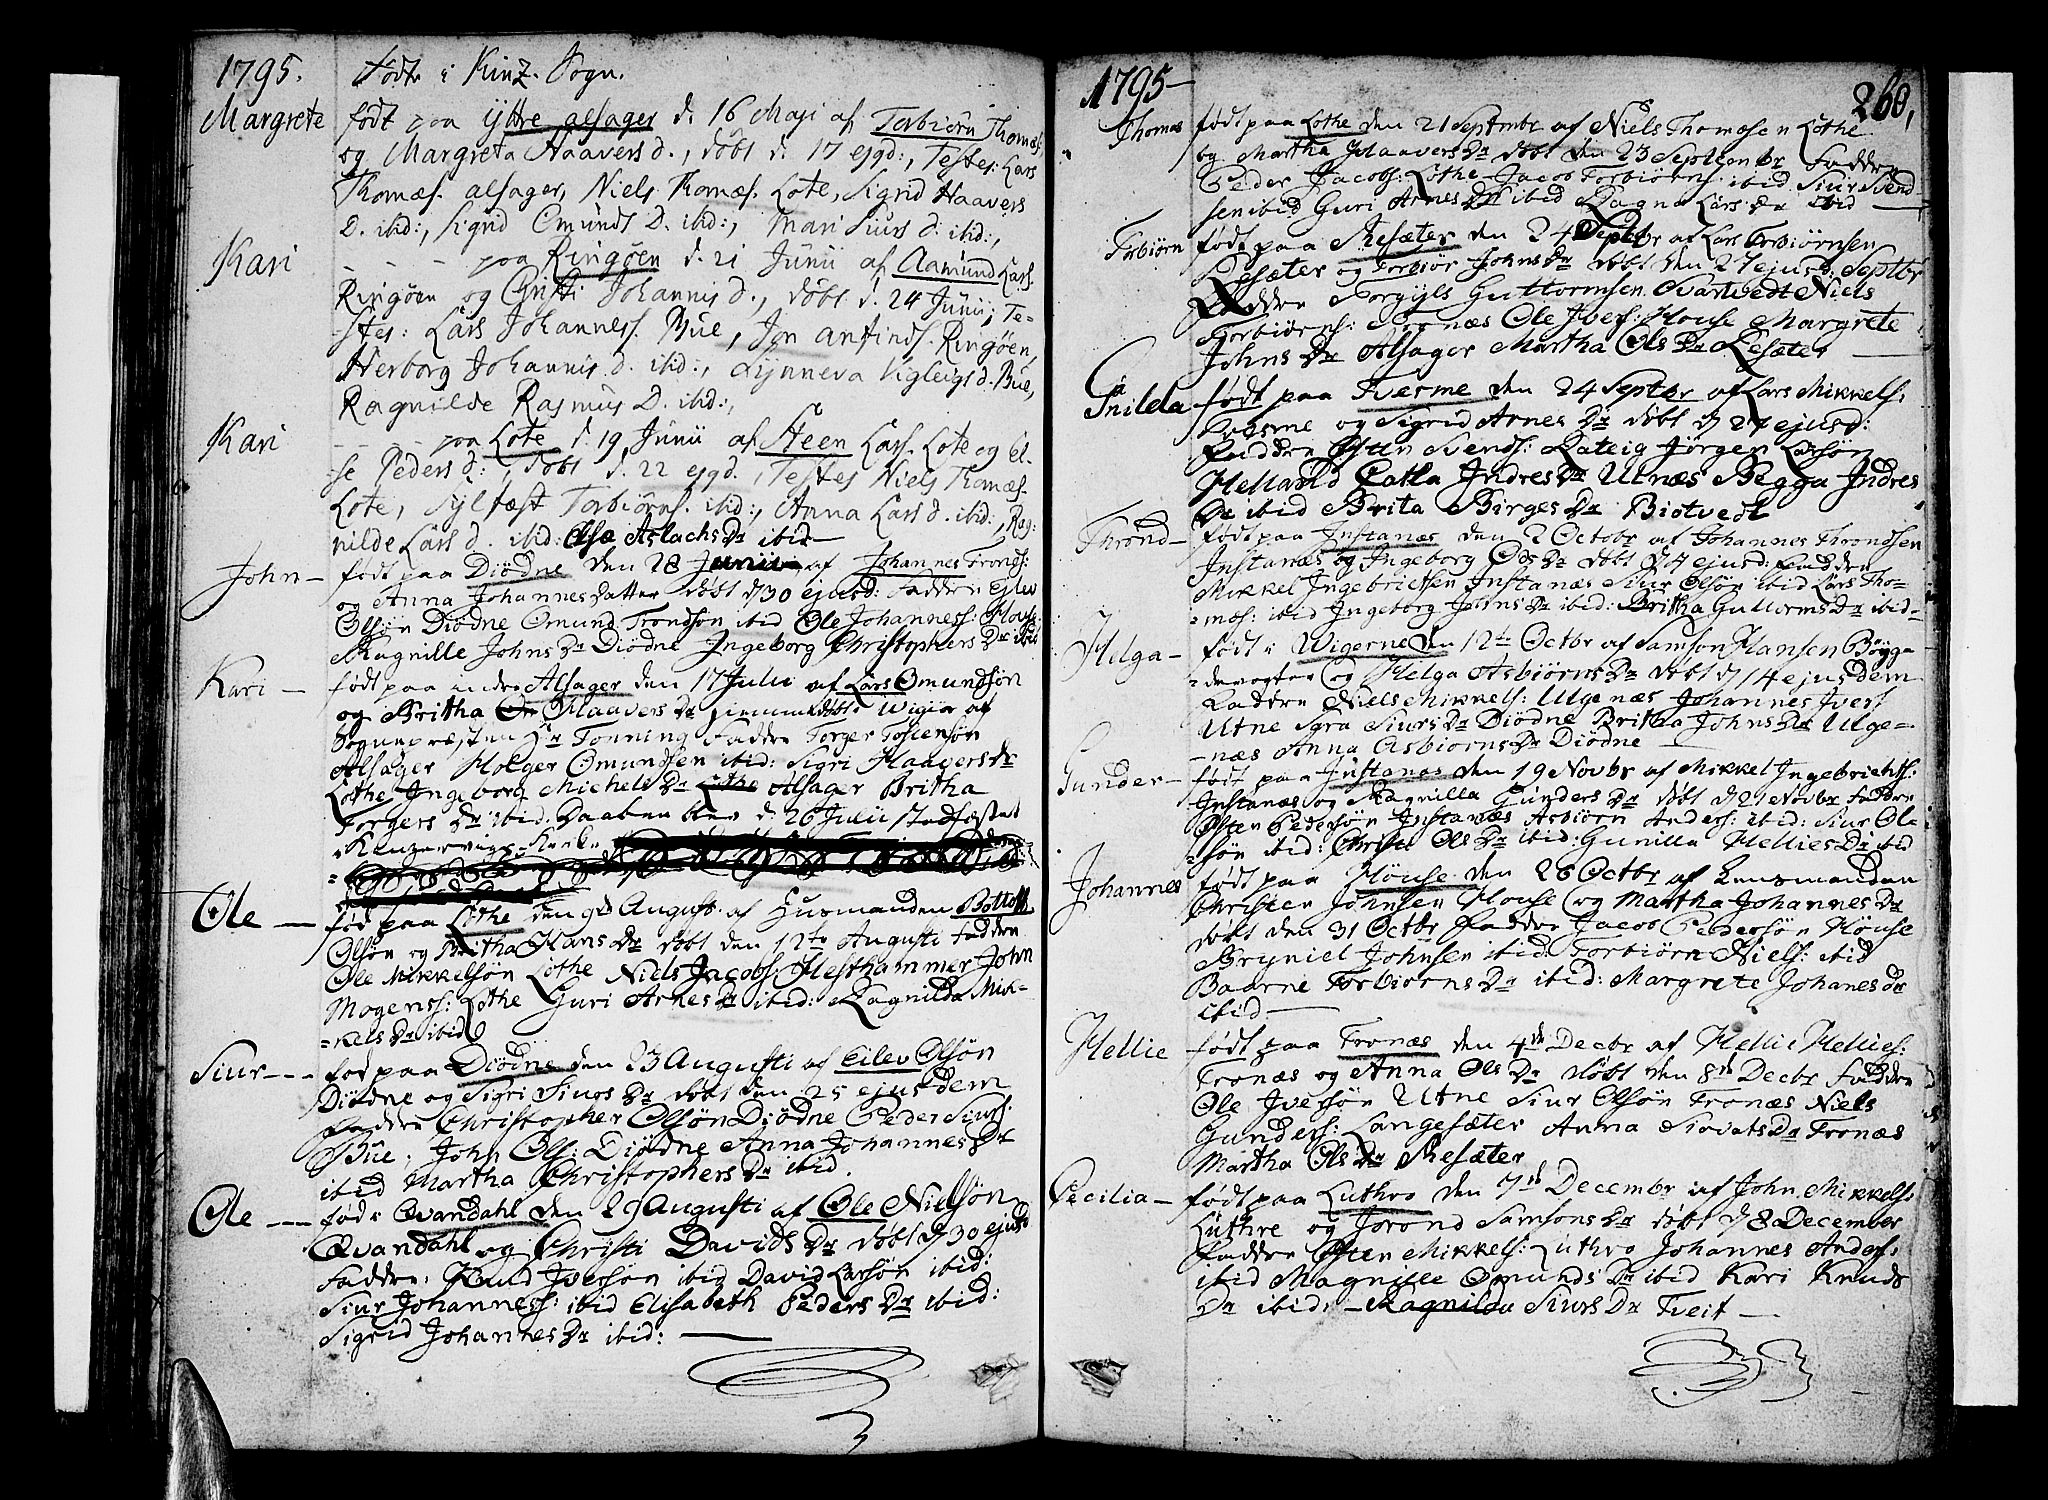 1795. Fødte i Kinz. Sogn.
Margrete født paa Ÿttre alsager d. 16 Maji af Torbiörn Thomæs.
og Margreta Haavers d., döbt d. 17 ejgd:, Testes: Lars
Thomæs. alsager, Niels Thomæs. Lote, Sigrid Haavers
D. ibid:, Sigrid Omunds D. ibid:, Mari Siurs d. ibid:,
Kari - - - - paa Ringöen d. 21 Junii af Aamund Lars.
Ringöen og Christi Johannis d., döbt d. 24 Junii, Te-
-stes: Lars Johanness. Bue, Jon anfinds. Ringöen,
Herborg Johannis d. ibid:, Lÿnneva Vigleigs d. Bue,
Ragnilde Rasmus D. ibid:,
Kari - - - - paa Lote d. 19 Junii af Steen Lars. Lote og El-
se Peders d:, döbt d. 22 ejgd., Testes Niels Thomæs.
Lote, Sylfæst Torbiörns. ibid:, Anna Lars d. ibid:, Rag:
nilde Lars d. ibid: Else Aslachs Dr ibid—
John — født paa Diödne den 28 Junii af Johannes Tronds:
og Anna Johannes datter döbt d 30 ejusd: Faddere Ejlev
Olsön Diödne Omund Trondsön ibid Ole Johanness: House
Magnille Johns Dr Diödne Ingeborg Christophers Dr ibid
Kari — født paa indre Alsager den 17 Julii af Lars Omundsön
og Britha Haavers Dr hiemmedöbt Wigia af
Sognepræsten Hr Tonning Faddre Torger Tostensön
Alsager Holger Omundsen ibid: Sigri Haavers dr
Lothe Ingeborg Michels Dr Lothe Alsager Britha
Torgers Dr ibid. Daaben blev d 26 Julii stadfæstet
i Kinzervigs Kirke
Ole — fød paa Lothe den 9de August. af Husmanden Botolf
Olsön og Britha Hans Dr döbt den 12te Augusti Faddre
Ole Mikkelsön Lothe Niels Jacobs: Hesthammer John
Mogenss: Lothe Guri Arnes Dr ibid: Ragnilda Mik-
=kels Dr ibid
Siur - - - fød paa Diödne den 23 Augusti af Eilev Olsön
Diödne og Sigri Siurs Dr döbt den 25 ejusdem
Faddre Christopher Olsön Diödne Peder Siurs:
Büe. John Ols: Diödne Anna Johannes Dr
ibid Martha Christophers Dr ibid.
Ole - - - fød i Qvandahl den 29 Augusti af Ole Nielsön
Qvandahl og Christi Davids Dr döbt d 30 ejusd
Faddre: Knud Iversön ibid David Larsön ibid:
Siur Johanness: ibid Elisabeth Peders Dr ibid:
Sigrid Johannes Dr ibid:
1795— 260,
Thomas født paa Lothe den 21 Septmbr af Niels Thomæsen Lothe
og Martha Haavers Dr döbt den 23 Septembr Faddre
Peder Jacobs: Lothe Jacob Torbiörns: ibid Siur Svend-
sen ibid Guri Arnes Dr ibid Ragna Lars Dr ibid
Torbiörn født paa Resæter den 24 Septbr af Lars Torbiörnsen
Resæter og Torbiör Johns Dr döbt den 27 ejusd: Septbr
Faddre Torgyls Guttormsen Qvartvedt Niels
Torbiörns: Tronæs Ole Ivers: House Margrete
Johns Dr Alsager Martha Ols Dr Resæter
Gunilda født paa Tverme den 24 Septbr af Lars Mikkels:
Tverme og Sigrid Arnes Dr döbt d 27 ejusd:
Faddre Östen Svends: Rateig Jörgen Larsön
Helland Catla Indres Dr Utnæs Begga Indres
Dr ibid Brita Birges Dr Biotvedt
Thrond— født paa Instanæs den 2 Octobr af Johannes Throndsen
Instanæs og Ingeborg Ols Dr döbt d 4 ejusd: Faddre
Mikkel Ingebrictsen Instanæs Siur Olsön ibid Lars Tho-
=mæs: ibid Ingeborg Johns Dr ibid: Britha Guttorms Dr ibid-
Helga— født i Wigerne den 12te Octbr af Samson Hansen Böyga-
=devogter og Helga Asbiörns Dr döbt d 14 ejusdem
Faddre Niels Mikkels: Ulgenæs Johannes Ivers
Utne Sgra Siurs Dr Diödne Britha Johns Dr Ulge-
-næs Anna Asbiorns Dr Diödne
Gunder— født paa Instanæs den 19 Novbr af Mikkel Ingebrichts:
Instanæs og Magnilla Gunders Dr döbt d 21 Novbr Faddre
Östen Pedersön Instanæs Asbiörn Anders: ibid: Siur Ole
=sön ibid: Christi Ols Dr ibid: Gunilla Hellies Dr ibid
Johannes født paa House den 26 Octbr af Lensmanden
Christen Johnsen House og Martha Johannes Dr
döbt den 31 Octbr Faddre Jacob Pedersön House
Bryniel Johnsen ibid Torbiörn Niels: ibid
Baarne Torbiorns Dr ibid: Margrete Johanes dr
ibid
Hellie født paa Tronæs den 4de Decbr af Hellie Hellies:
Tronæs og Anna Ols Dr döbt den 8de Decbr Faddre
Ole Iversön Utne Siur Olsön Tronæs Niels
Gunders: Langesæter Anna Siovats Dr Tronæs
Martha Ols Dr Resæter
Cecilia— født paa Luthro den 7de Decembr af John Mikkels:
Luthre og Jorond Samsons Dr döbt d 8 December
Faddre Östen Mikkels: Luthro Johannes Anders:
ibid Magnille Omunds Dr ibid Kari Knuds
Dr ibid: — Ragnilda Siurs Dr Tveit —